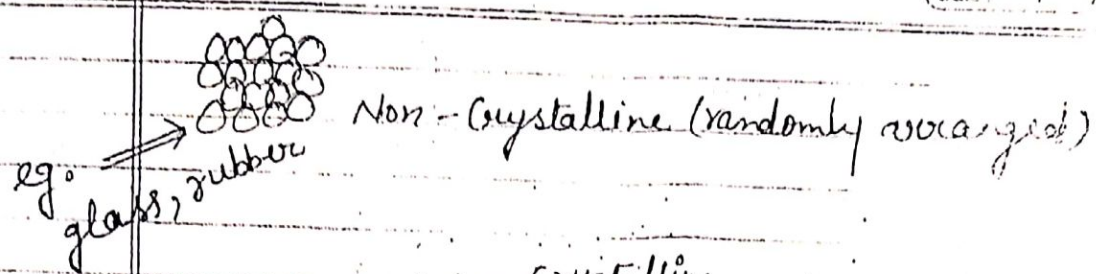 Non-Crystalline (randomly arranged)
eg. glass, rubber